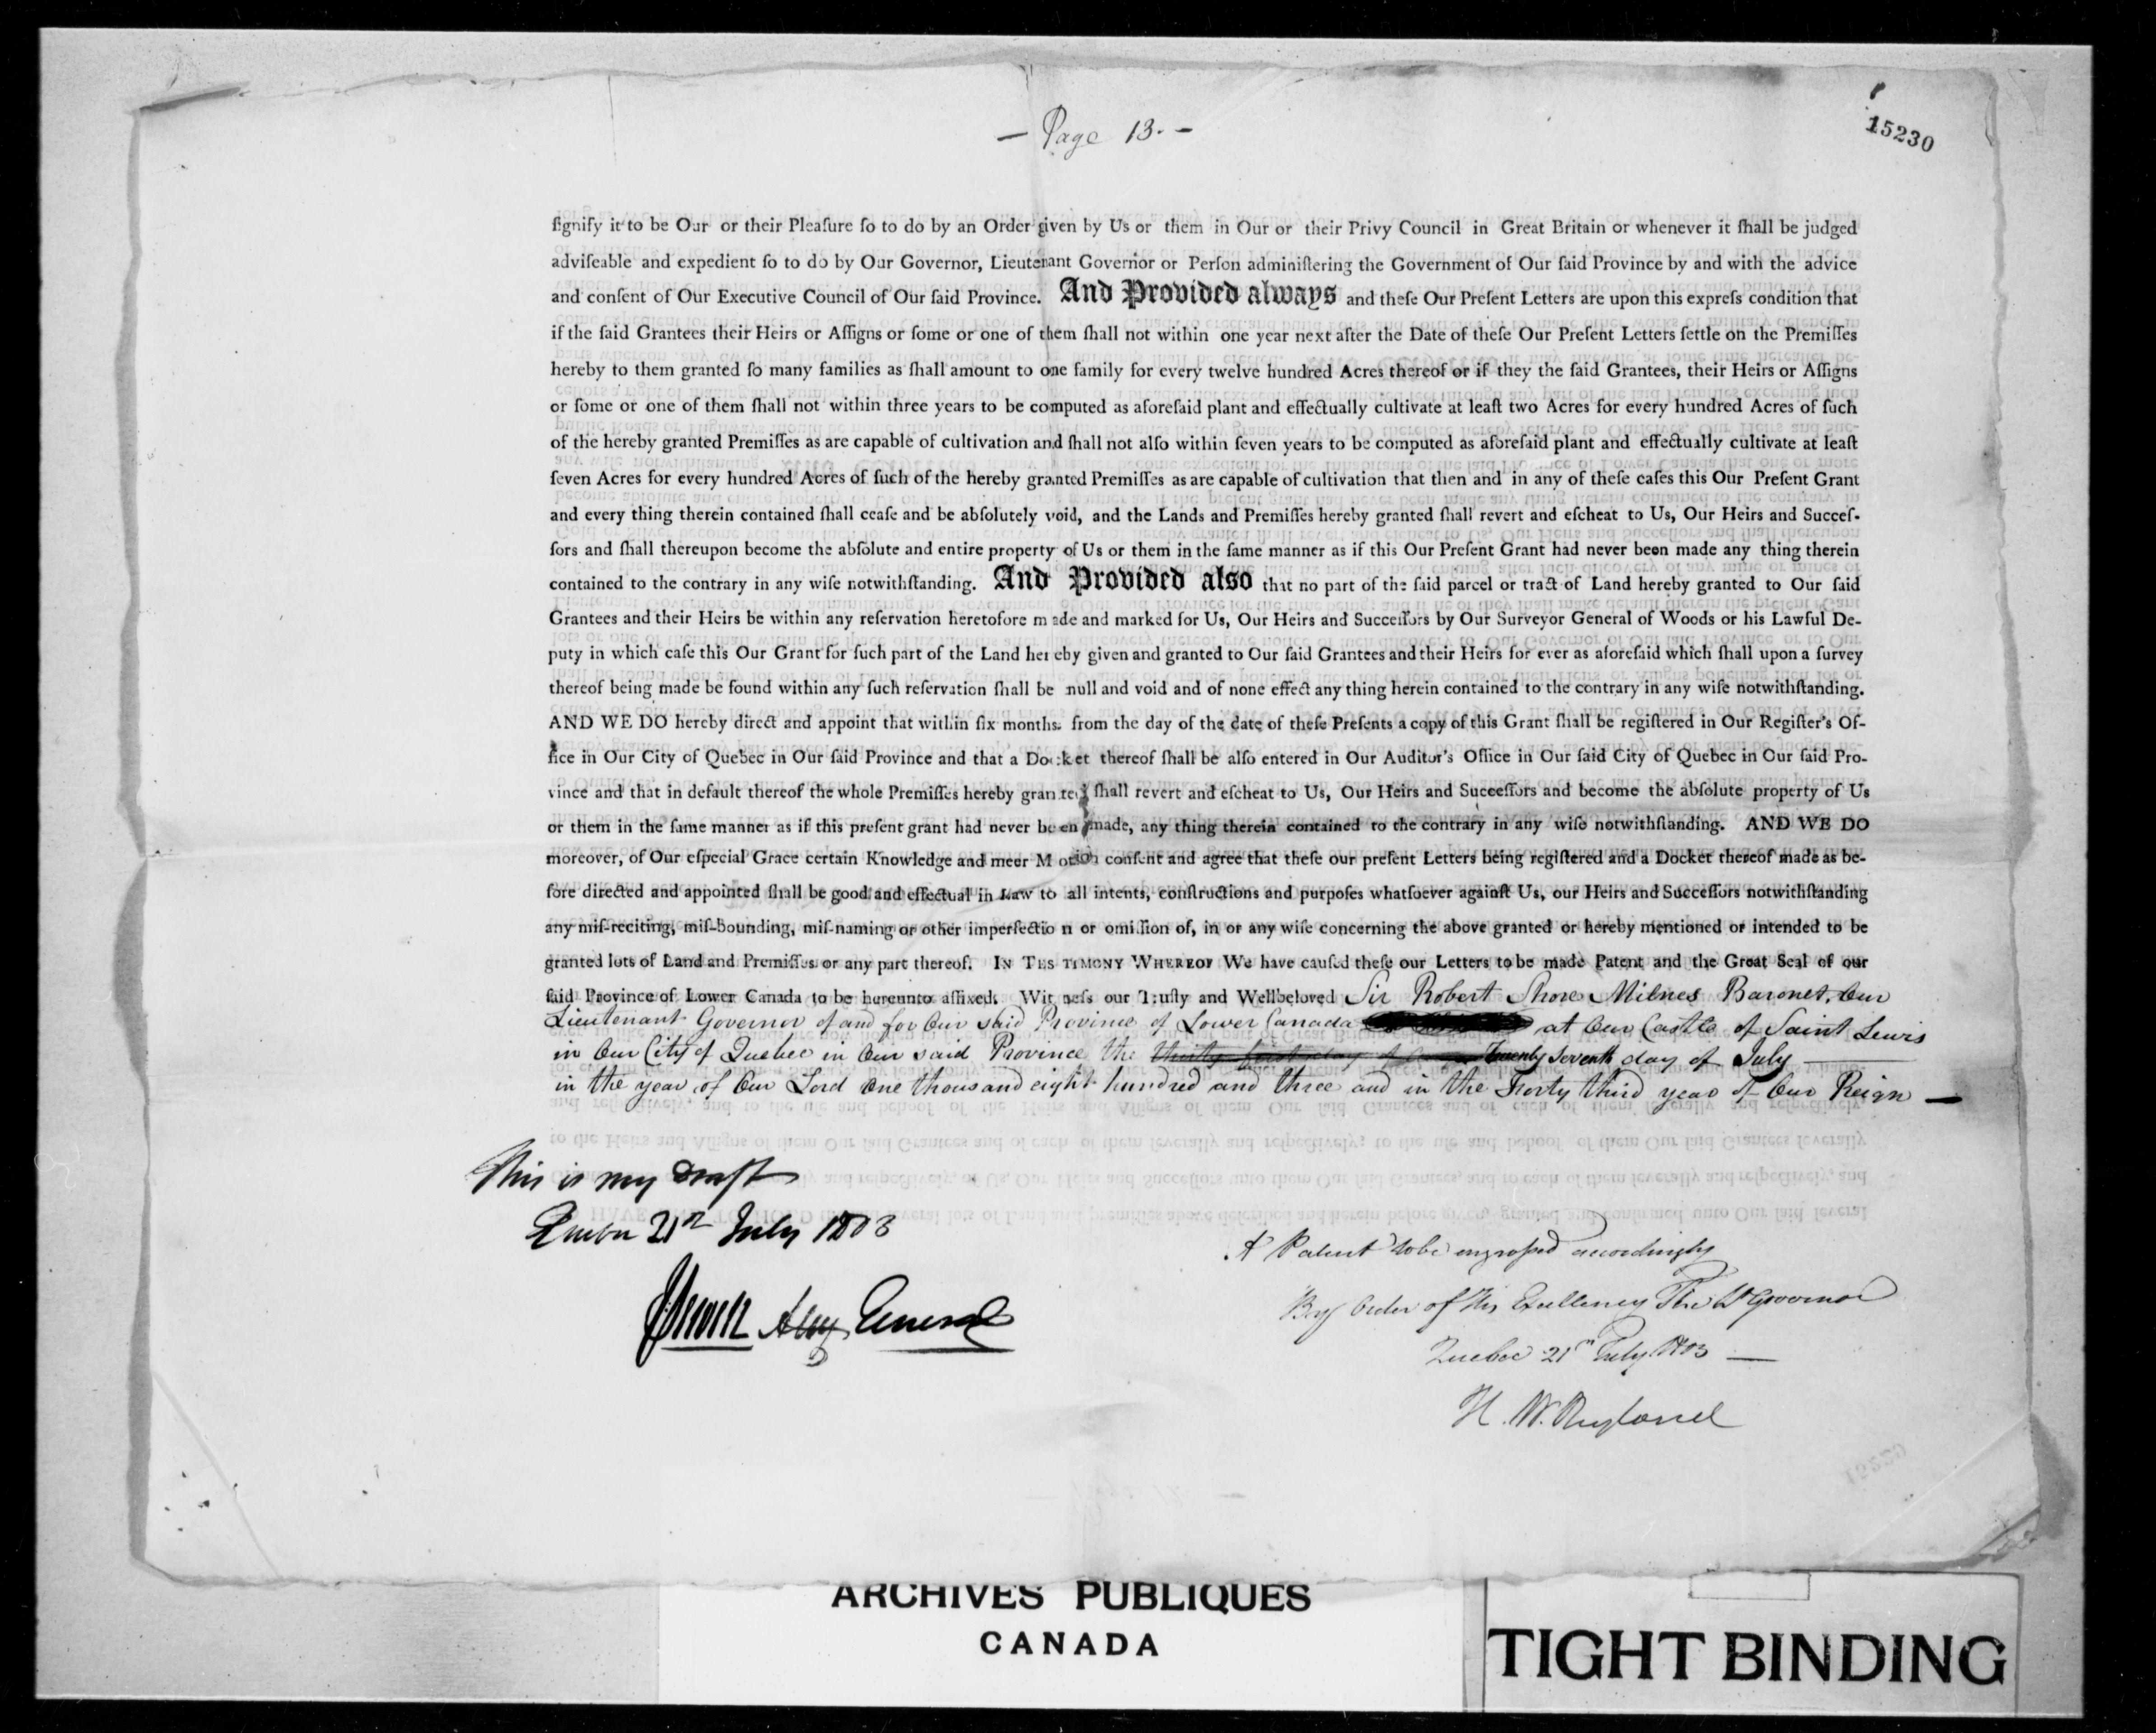 — Page 13. —
15230
ſignify it to be Our or their Pleaſure ſo to do by an Order given by Us or them in Our or their Privy Council in Great Britain or whenever it ſhall be judged
adviſeable and expedient ſo to do by Our Governor, Lieutenant Governor or Perſon adminiſtering the Government of Our ſaid Province by and with the advice
and conſent of Our Executive Council of Our ſaid Province. And Provided always and theſe Our Preſent Letters are upon this expreſs condition that
if the ſaid Grantees their Heirs or Aſſigns or ſome or one of them ſhall not within one year next after the Date of theſe Our Preſent Letters ſettle on the Premiſſes
hereby to them granted ſo many families as ſhall amount to one family for every twelve hundred Acres thereof or if they the ſaid Grantees, their Heirs or Aſſigns
or ſome or one of them ſhall not within three years to be computed as aforeſaid plant and effectually cultivate at leaſt two Acres for every hundred Acres of ſuch
of the hereby granted Premiſſes as are capable of cultivation and ſhall not alſo within ſeven years to be computed as aforeſaid plant and effectually cultivate at leaſt
ſeven Acres for every hundred Acres of ſuch of the hereby granted Premiſſes as are capable of cultivation that then and in any of theſe caſes this Our Preſent Grant
and every thing therein contained ſhall ceaſe and be abſolutely void, and the Lands and Premiſſes hereby granted ſhall revert and eſcheat to Us, Our Heirs and Succeſ-
ſors and ſhall thereupon become the abſolute and entire property of Us or them in the ſame manner as if this Our Preſent Grant had never been made any thing therein
contained to the contrary in any wiſe notwithſtanding. And Provided also that no part of the ſaid parcel or tract of Land hereby granted to Our ſaid
Grantees and their Heirs be within any reſervation heretofore made and marked for Us, Our Heirs and Succeſſors by Our Surveyor General of Woods or his Lawful De-
puty in which caſe this Our Grant for ſuch part of the Land hereby given and granted to Our ſaid Grantees and their Heirs for ever as aforeſaid which ſhall upon a ſurvey
thereof being made be found within any ſuch reſervation ſhall be null and void and of none effect any thing herein contained to the contrary in any wiſe notwithſtanding.
AND WE DO hereby direct and appoint that within ſix months from the day of the date of theſe Preſents a copy of this Grant ſhall be regiſtered in Our Regiſter's Of-
fice in Our City of Quebec in Our ſaid Province and that a Docket thereof ſhall be alſo entered in Our Auditor's Office in Our ſaid City of Quebec in Our ſaid Pro-
vince and that in default thereof the whole Premiſſes hereby granted ſhall revert and eſcheat to Us, Our Heirs and Succeſſors and become the abſolute property of Us
or them in the ſame manner as if this preſent grant had never been made, any thing therein contained to the contrary in any wiſe notwithſtanding. AND WE DO
moreover, of Our eſpecial Grace certain Knowledge and meer Motion conſent and agree that theſe our preſent Letters being regiſtered and a Docket thereof made as be-
fore directed and appointed ſhall be good and effectual in Law to all intents, conſtructions and purpoſes whatſoever againſt Us, our Heirs and Succeſſors notwithſtanding
any miſ-reciting, miſ-bounding, miſ-naming or other imperfection or omiſſion of, in or any wiſe concerning the above granted or hereby mentioned or intended to be
granted lots of Land and Premiſſes or any part thereof. IN TESTIMONY WHEREOF We have cauſed theſe our Letters to be made Patent and the Great Seal of our
ſaid Province of Lower Canada to be hereunto affixed. Witneſs our Truſty and Wellbeloved Sir Robert Shore Milnes Baronet, Our
Lieutenant Governor of and for Our said Province of Lower Canada at Our Castle of Saint Lewis
in Our City of Quebec in Our said Province the thirty first day of Twenty Seventh day of July
in the year of Our Lord One thousand eight hundred and three and in the Forty third year of Our Reign —
This is my Draft
Quebec 21st July 1803
Atty General
A Patent to be engrossed accordingly
By Order of His Excellency The Lt Governor
Quebec 21st July 1803 —
H. W. Ryland
ARCHIVES PUBLIQUES
CANADA
TIGHT BINDING